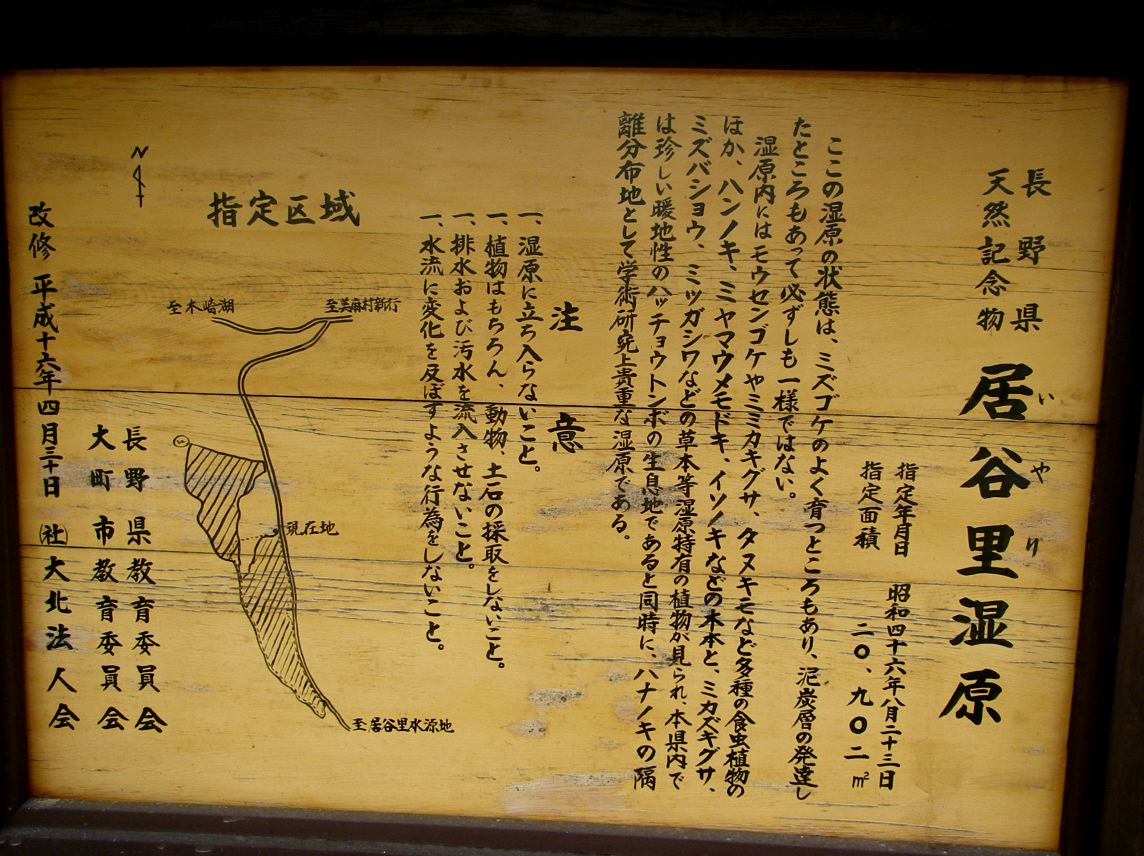 長野県
天然記念物
居谷里湿原
いやり
指定年月日 昭和四十六年八月二十三日
指定面積 二〇、九〇二㎡
ここの湿原の状態は、ミズゴケのよく育つところもあり、泥炭層の発達し
たところもあって必ずしも一様ではない。
湿原内にはモウセンゴケやミミカキグサ、タヌキモなど多種の食虫植物の
ほか、ハンノキ、ミヤマウメモドキ、イソノキなどの木本と、ミカズキグサ、
ミズバショウ、ミツガシワなどの草本等湿原特有の植物が見られ、本県内で
は珍しい暖地性のハッチョウトンボの生息地であると同時に、ハナノキの隔
離分布地として学術研究上貴重な湿原である。
注意
一、湿原に立ち入らないこと。
一、植物はもちろん、動物、土石の採取をしないこと。
一、排水および汚水を流入させないこと。
一、水流に変化を及ぼすような行為をしないこと。
指定区域
N
至美麻村新行
至木崎湖
現在地
至居谷里水源地
長野県教育委員会
大町市教育委員会
改修 平成十六年四月三十日 ㈳大北法人会